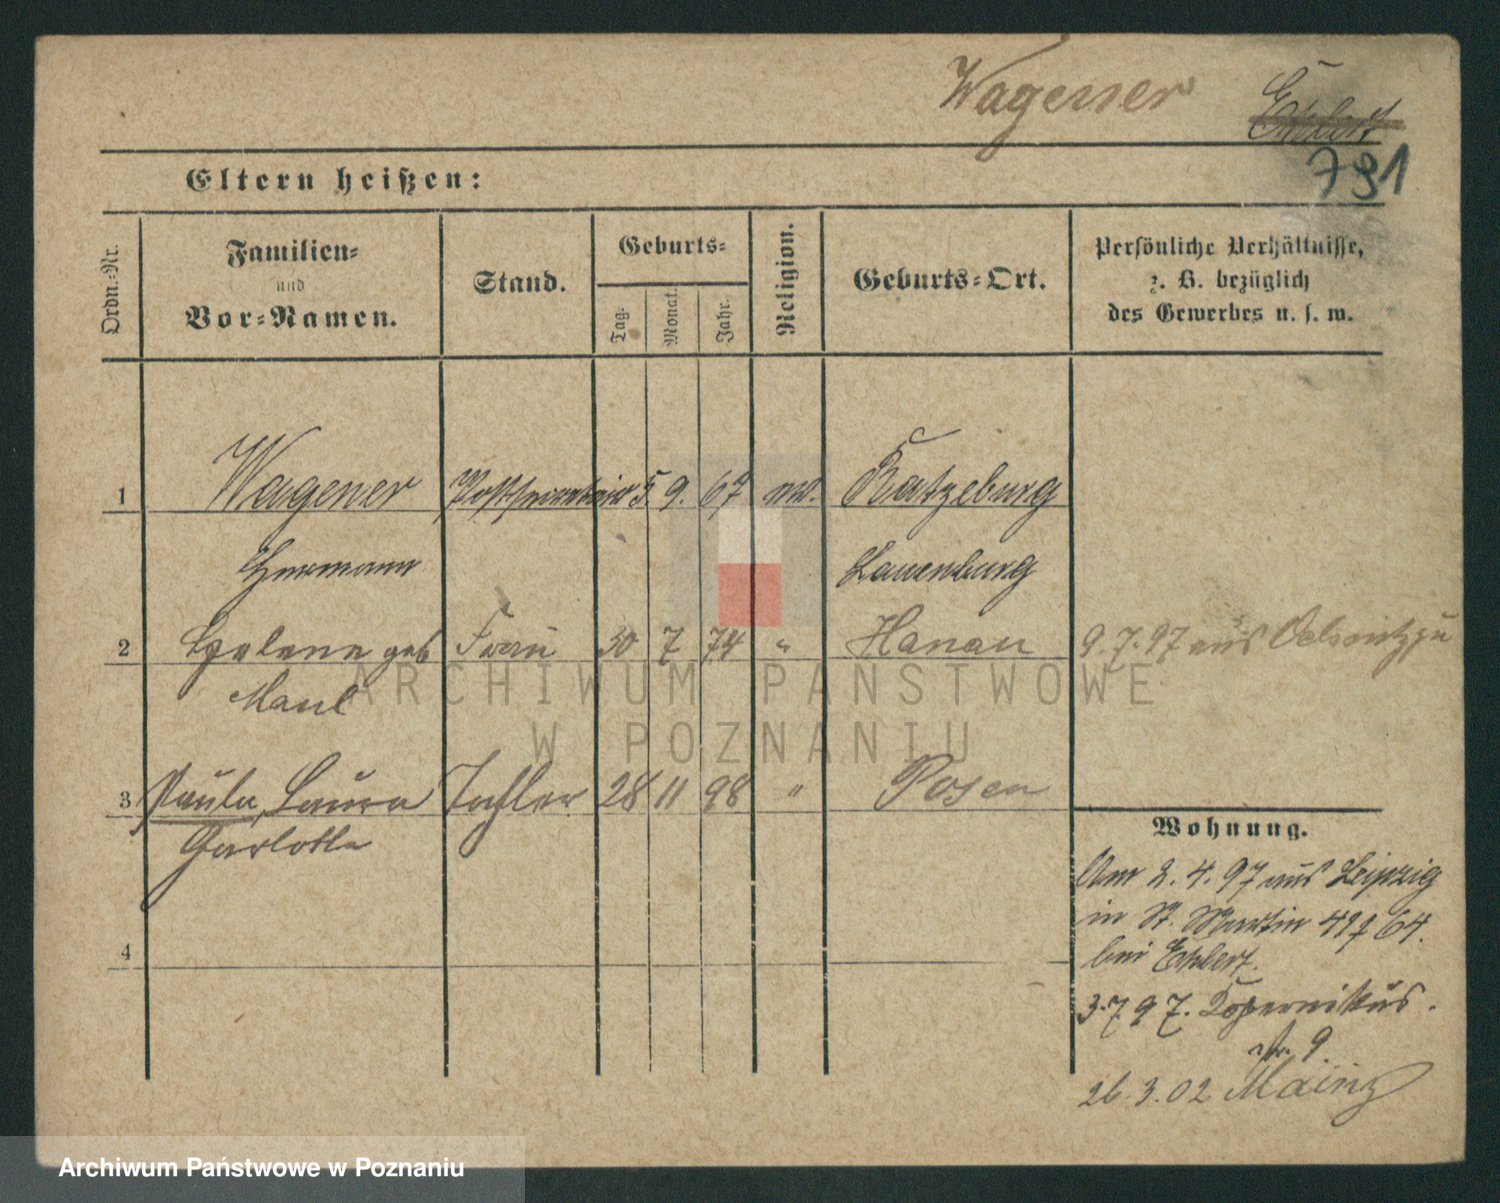 Wagener
Ekbert
791
Eltern heißen:
Ordn.-Nr.
Familien-
und
Vor-Namen.
Stand.
Geburts-
Tag.
Monat.
Jahr.
Religion.
Geburts-Ort.
Persönliche Verhältnisse,
z. B. bezüglich
des Gewerbes u. s. w.
1 Wagener Postsecretair 5. 9. 67 ev. Ratzeburg
Hermann Lauenburg
2 Helene geb Frau 30 7 74 " Hanau 9.7.97 aus Oelsnitz zu
Maul
3 Paula, Laura Tochter 28 11 98 " Posen
Charlotte
4
Wohnung.
Am 2.4.97 aus Leipzig
in St. Martin 64.
bei Ekbert.
3.7.97. Kopernikus.
str. 9.
26.3.02 Mainz
ARCHIWUM PAŃSTWOWE
W POZNANIU
Archiwum Państwowe w Poznaniu